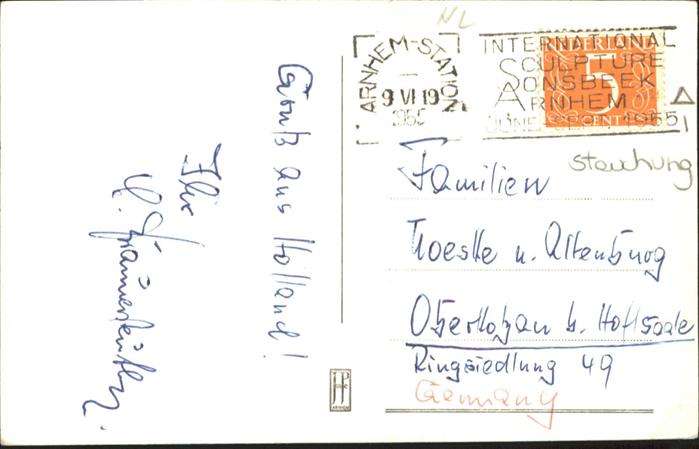 NL
ARNHEM-STATION
9 VI 19
1955
INTERNATIONAL
SCULPTURE
SONSBEEK
ARNHEM
1955
NEDERLAND
5
CENT
Stauchung
Gruß aus Holland!
Ihr
Familien
u. Altenburg
Oberkotzau b. Hof/Saale
Ringsiedlung 49
Germany